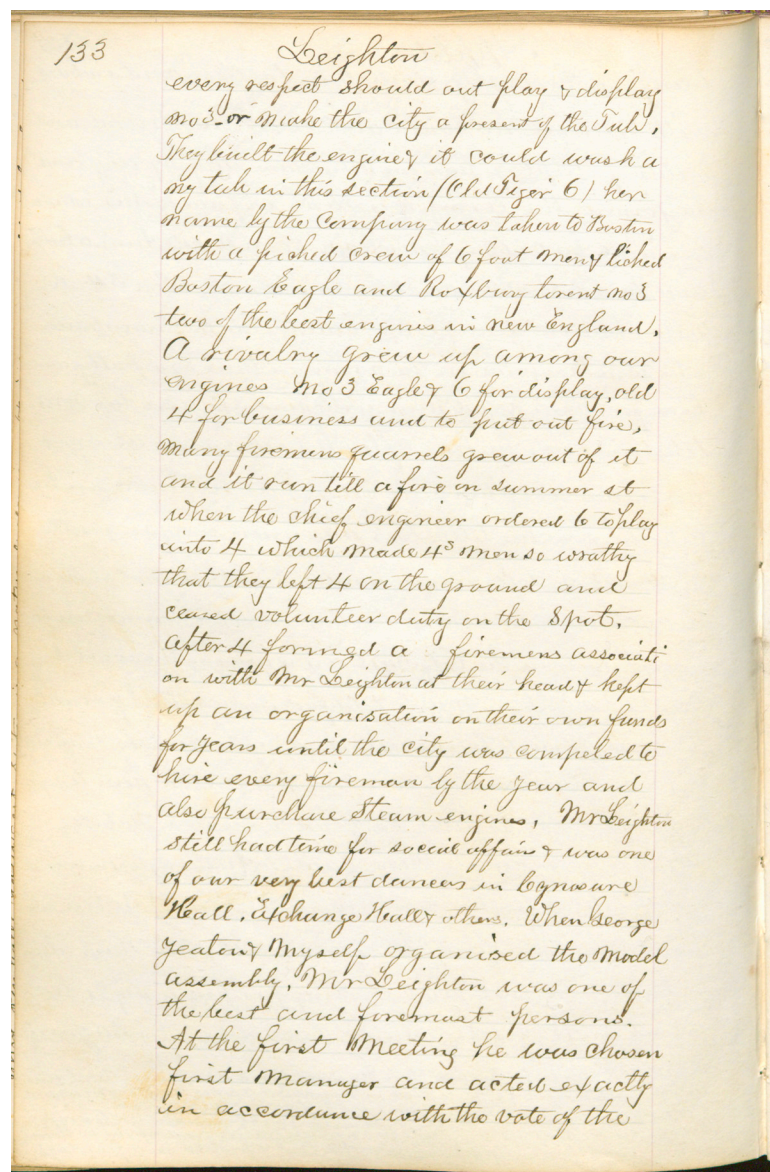 133 Leighton
every respect should out play & display
no 3 - or make the city a present of the Tub.
They built the engine & it could wash a
ny tub in this section (Old Tiger 6) her
name by the Company was taken to Boston
with a picked crew of 6 foot men & licked
Boston Eagle and Roxbury torent no 3
two of the best engines in new England.
A rivalry grew up among our
engines no 3 Eagle & 6 for display, old
4 for business and to put out fire.
Many firemens quarrels grew out of it
and it run till a fire on summer st
when the chief engineer ordered 6 to play
into 4 which made 4s men so wrathy
that they left 4 on the ground and
ceased volunteer duty on the Spot.
After 4 formed a firemens associati
on with Mr Leighton at their head & kept
up an organisation on their own funds
for years until the city was compeled to
hire every fireman by the year and
also purchase Steam engines. Mr Leighton
still had time for social affair & was one
of our very best dancers in Cynosure
Hall, Exchange Hall & others. When George
Yeaton & Myself organised the Model
assembly, Mr Leighton was one of
the best and foremost persons.
At the first Meeting he was chosen
first Manager and acted exactly
in accordance with the vote of the